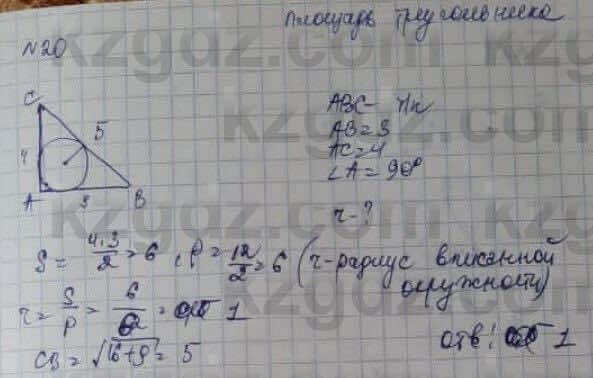 Площадь треугольника
№20
C
5
4
A
3
B
ABC-
AB=3
AC=4
∠A=90°
r-?
S= 4·3/2=6, p=12/2=6 (r-радиус вписанной
окружности)
r= S/p = 6/6 = 1
CB= √16+9 = 5
отв: 1
kzgdz.com